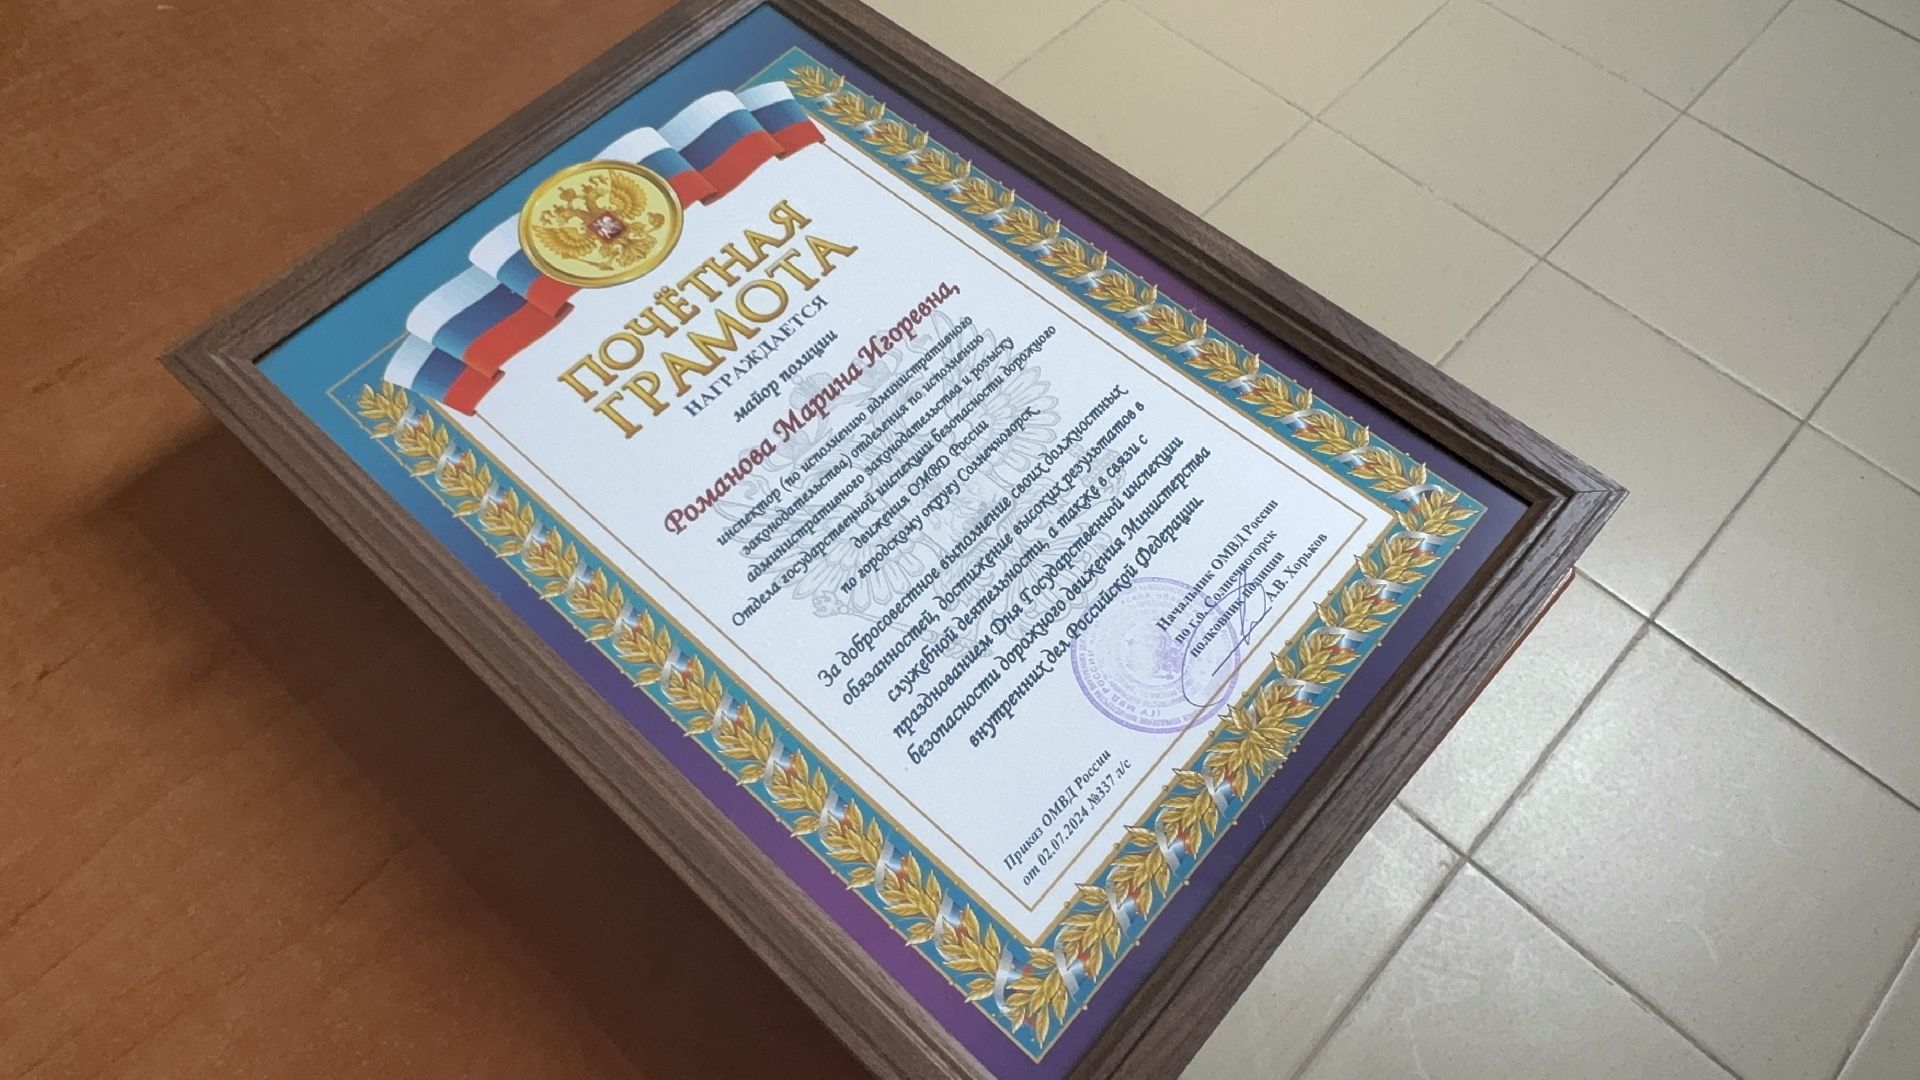 ПОЧЁТНАЯ
ГРАМОТА
НАГРАЖДАЕТСЯ
майор полиции
Романова Марина Игоревна,
инспектор (по исполнению административного
законодательства) отделения по исполнению
административного законодательства и розыску
Отдела государственной инспекции безопасности дорожного
движения ОМВД России
по городскому округу Солнечногорск
За добросовестное выполнение своих должностных
обязанностей, достижение высоких результатов в
служебной деятельности, а также в связи с
празднованием Дня Государственной инспекции
безопасности дорожного движения Министерства
внутренних дел Российской Федерации.
Начальник ОМВД России
по г.о. Солнечногорск
полковник полиции
А.В. Хорьков
Приказ ОМВД России
от 02.07.2024 №337 л/с